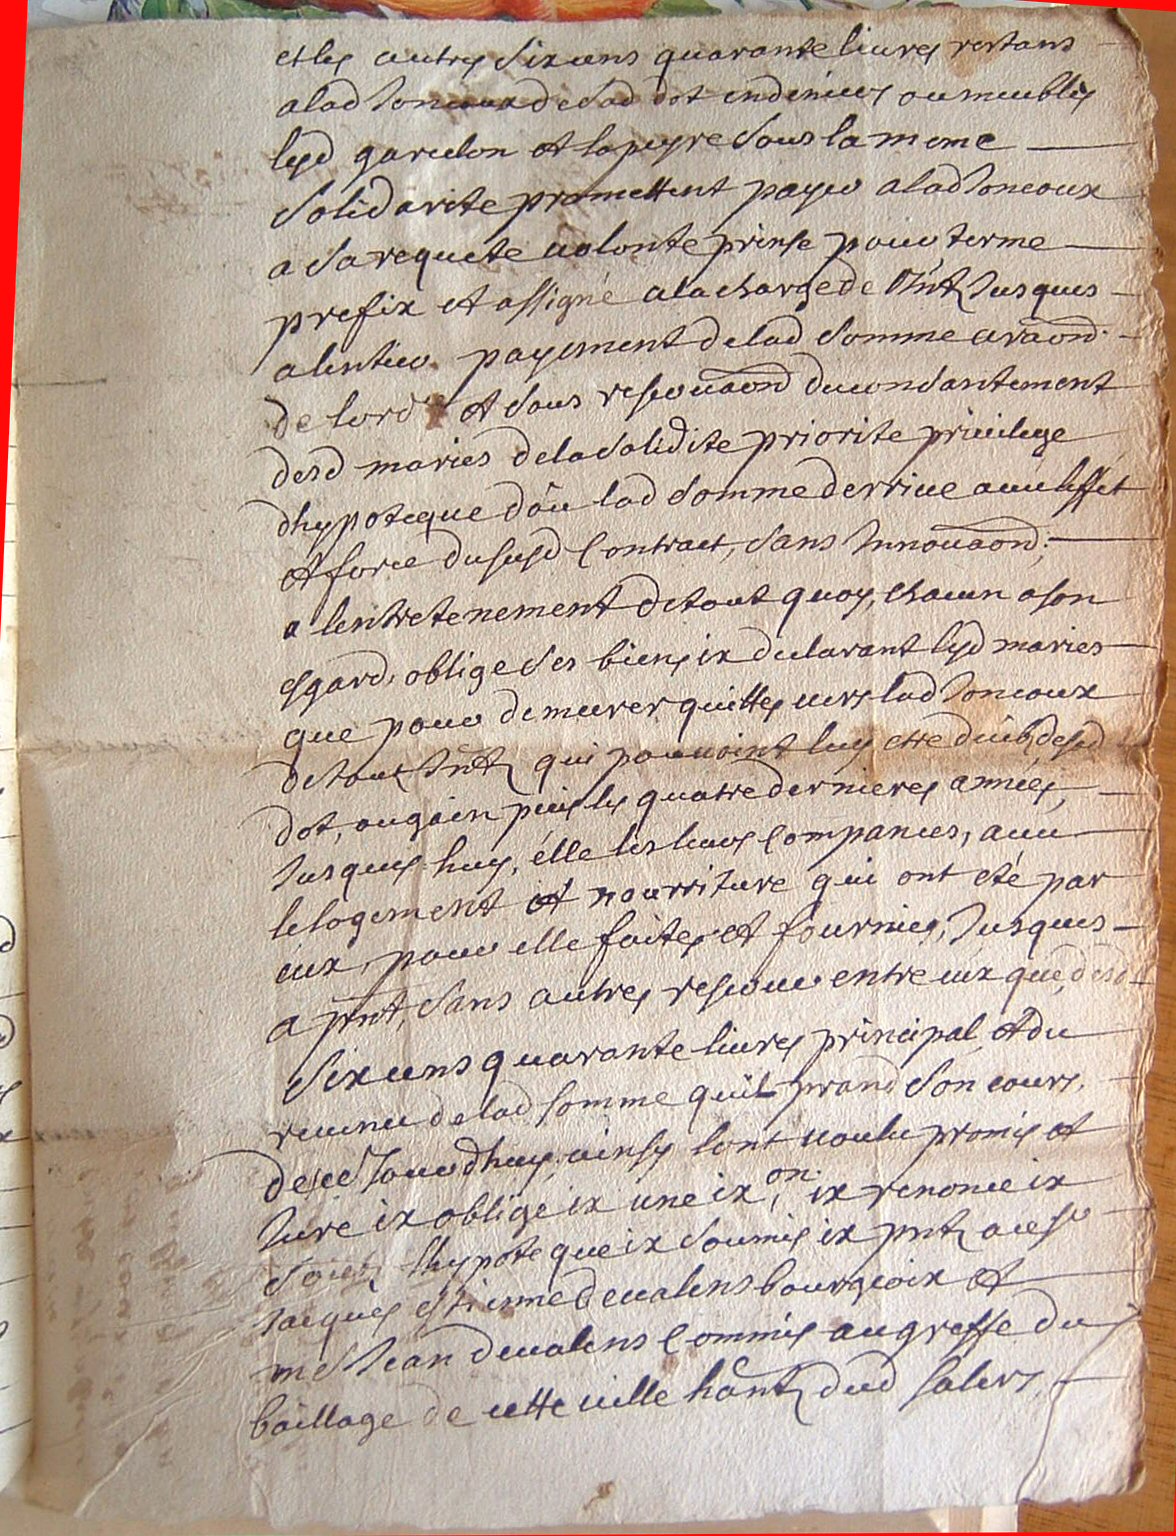 et les autres six cens quarante livres restans
a lad Joncoux de sad dot en deniers ou meubles
lesd garcelon et lapeyre sous la meme
solidarite promettent payer a lad Joncoux
a sa requete volonte prinse pour terme
prefix et assigné a la charge de l'intt Jusques
a lentier payement de lad somme avaond
de lord et sous reservaond du consantement
desd maries de la solidite priorite privilege
dhypoteque doù lad somme derrive avec leffet
et force du susd Contract, sans Innovaond,
a lentretenement de tout quoy, chacun a son
esgard, oblige ses biens ix declarant lesd maries
que pour demeurer quittes vers lad Joncoux
de tout Intt qui pouvoint luy etre deub desd
dot, ou gain puis les quatre dernieres années,
Jusques huy, élle les leurs Compances, avec
le logement et nourriture qui ont eté par
eux, pour elle faites et fournies, Jusques
a pnt, sans autres reserve entre eux que desd
six cens quarante livres principal et du
revenu de lad somme quil prand son cours,
de ce Jourdhuy, ainsy lont voulu promis et
Juré ix obligé ix une ix on ix renonce ix
soubz lhypoteque ix soumis ix pntz a ce sr
Jacques estienne devalens bourgeoix et
me Jean devalens Commis au greffe du
baillage de cette ville hantz dud salers